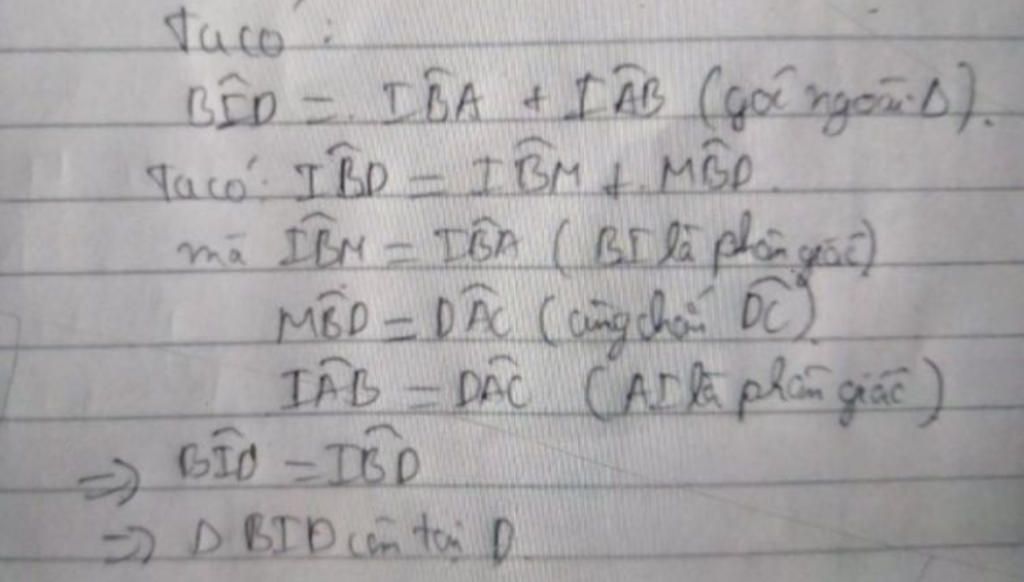 Ta có :
BÎD = IB̂A + IÂB (góc ngoài Δ).
Ta có: IB̂D = IB̂M + MB̂D.
mà IB̂M = IB̂A ( BI là phân giác)
MB̂D = DÂC (cùng chắn D͡C).
IÂB = DÂC (AI là phân giác)
=> BÎD = IB̂D
=> Δ BID cân tại D.